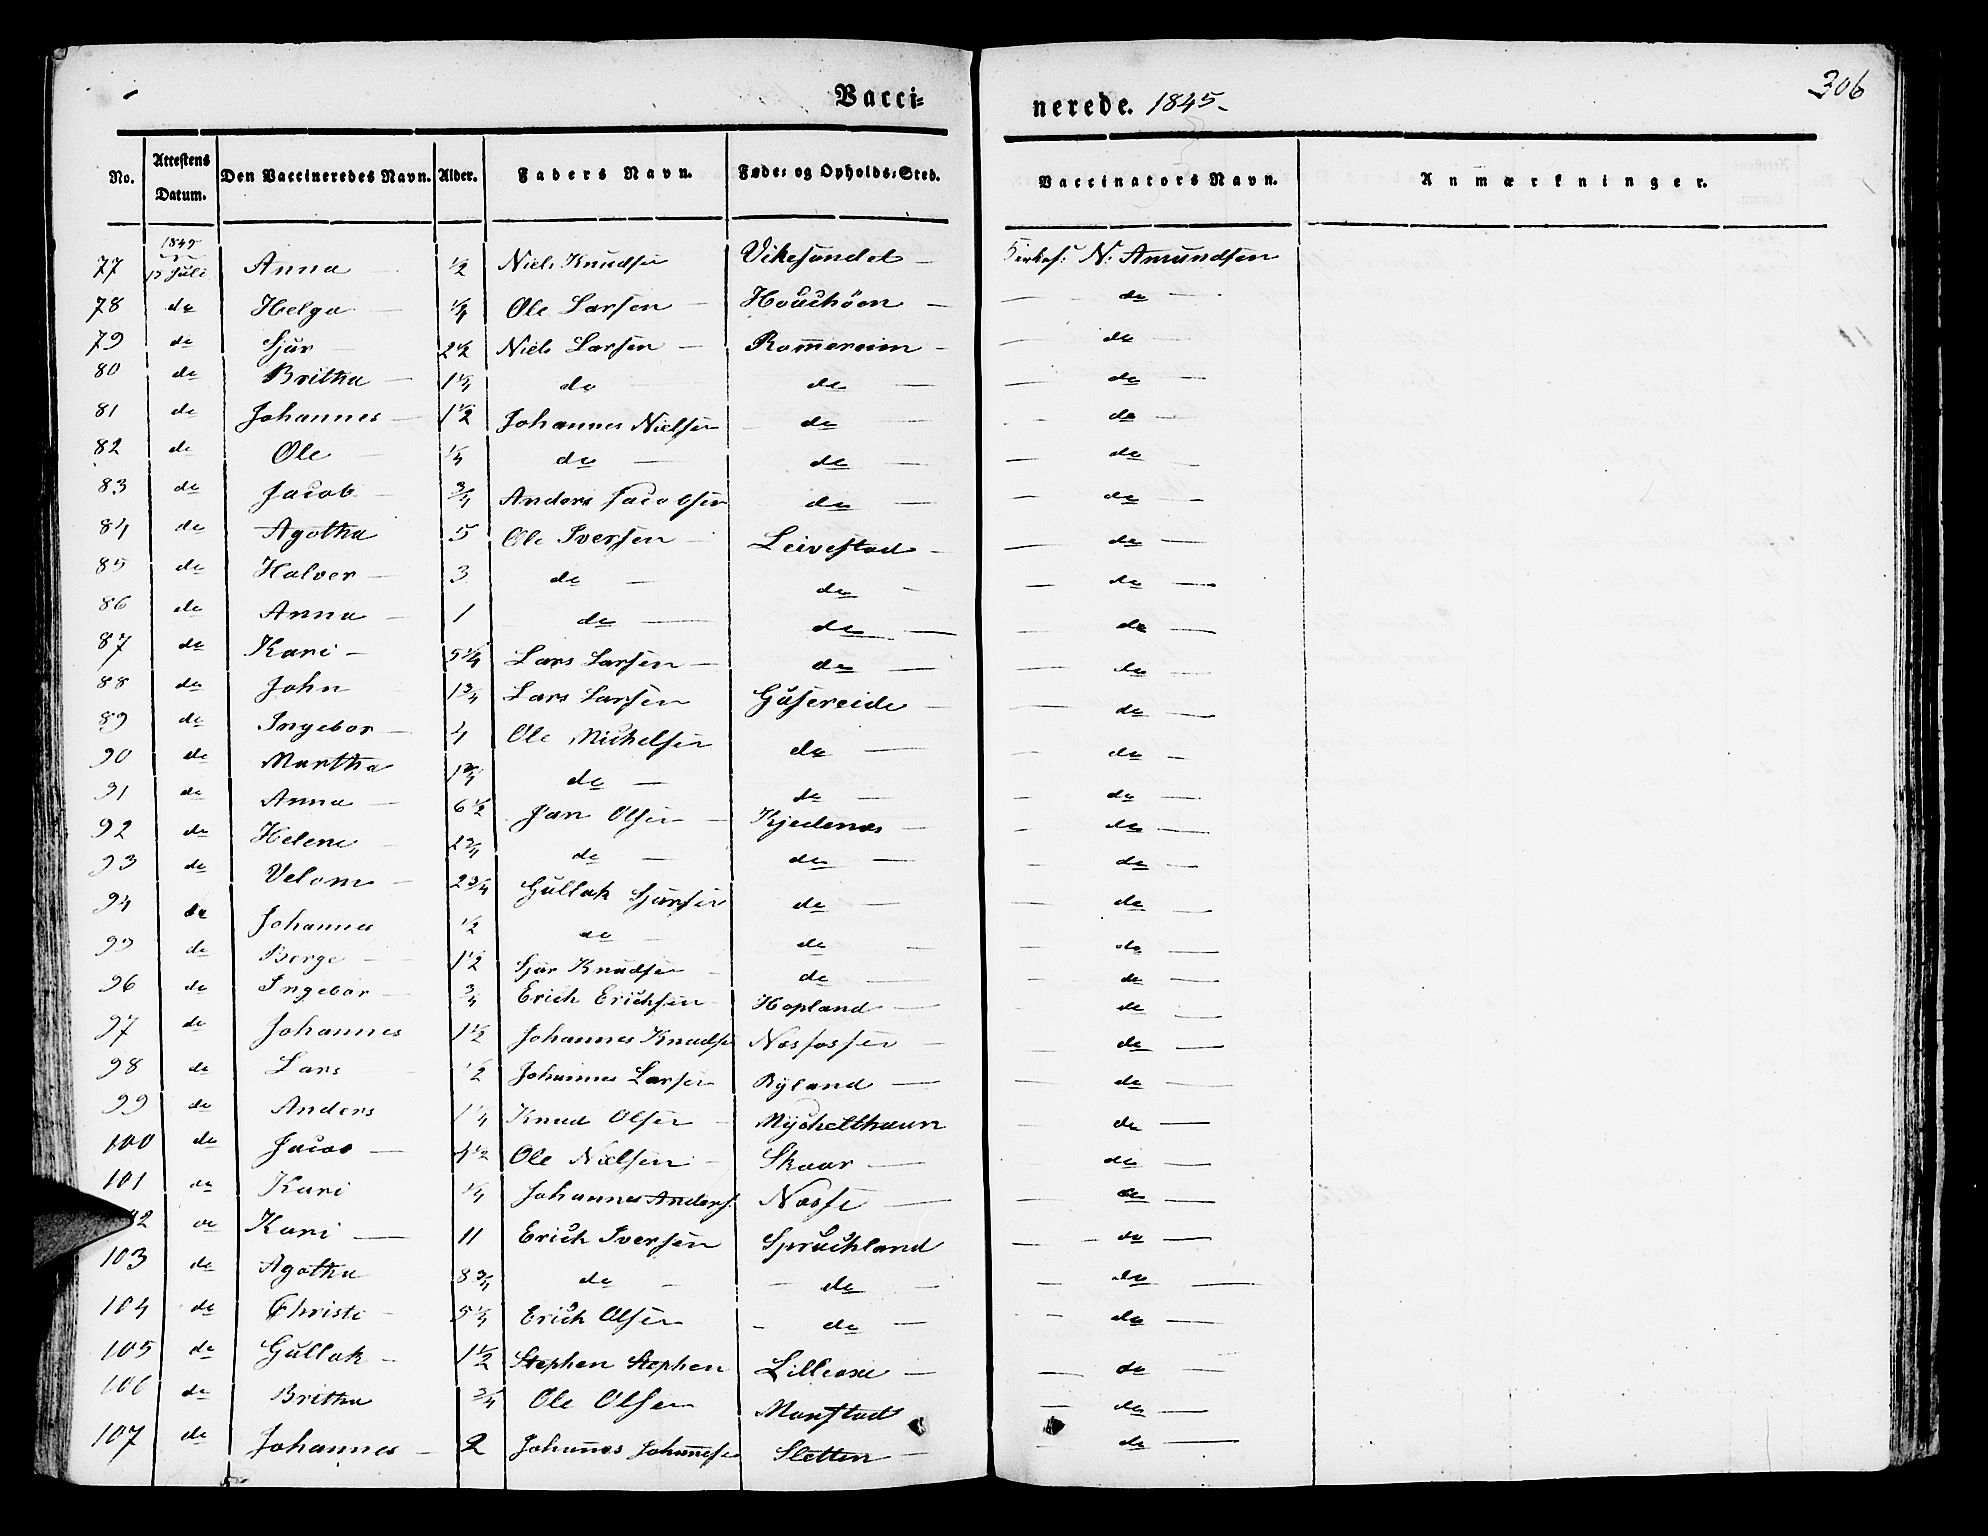 306
Vacci= nerede. 1845
No. Attestens Datum. Den Vaccineredes Navn. Alder. Faders Navn. Føde= og Opholds=Sted. Vaccinators Navn. Anmærkninger.
77 1845 15 Juli Anna 1/2 Niels Knudsen Vikesundet N: Amundsen
78 do Helga 1/4 Ole Larsen do
79 do Sjur 2 1/2 Niels Larsen Rom̅ereim do
80 do Britha 1 1/4 do do do
81 do Johannes 1 1/2 Johannes Nielsen do do
82 do Ole 1/4 do do do
83 do Jacob 3/4 Anders Jacobsen do do
84 do Agotha 5 Ole Iversen Leivestad do
85 do Halver 3 do do do
86 do Anna 1 do do do
87 do Kari 5 1/4 Lars Larsen do do
88 do John 1 3/4 Lars Larsen Guisereide do
89 do Ingebor 4 Ole Michelsen do do
90 do Martha 1 3/4 do do do
91 do Anna 6 1/2 Jan Olsen Kjedenes do
92 do Helene 2 3/4 do do do
93 do Velom 2 3/4 Gullak Sjursen do do
94 do Johannes 1/2 do do do
95 do Børge 1 1/2 Sjur Knudsen do do
96 do Ingebor 3/4 Erich Erichsen Hopland do
97 do Johannes 1 1/2 Johannes Knudse do
98 do Lars 1/2 Johannes Larsen Ryland do
99 do Anders 1 1/4 Knud Olsen Myckelthuun do
100 do Jacob 4 1/2 Ole Nielsen Skaar do
101 do Kari 1/4 Johannes Anders. Næsse do
102 do Kari 11 Erich Iversen Spruckland do
103 do Agotha 8 3/4 do do do
104 do Christi 5 1/4 Erich Olsen do do
105 do Gullak 1 1/2 Stephen Stephen Lilleose do
106 do Britha 3/4 Ole Olsen Manstad do
107 do Johannes 2 Johan̅es Johan̅ese Sletten do